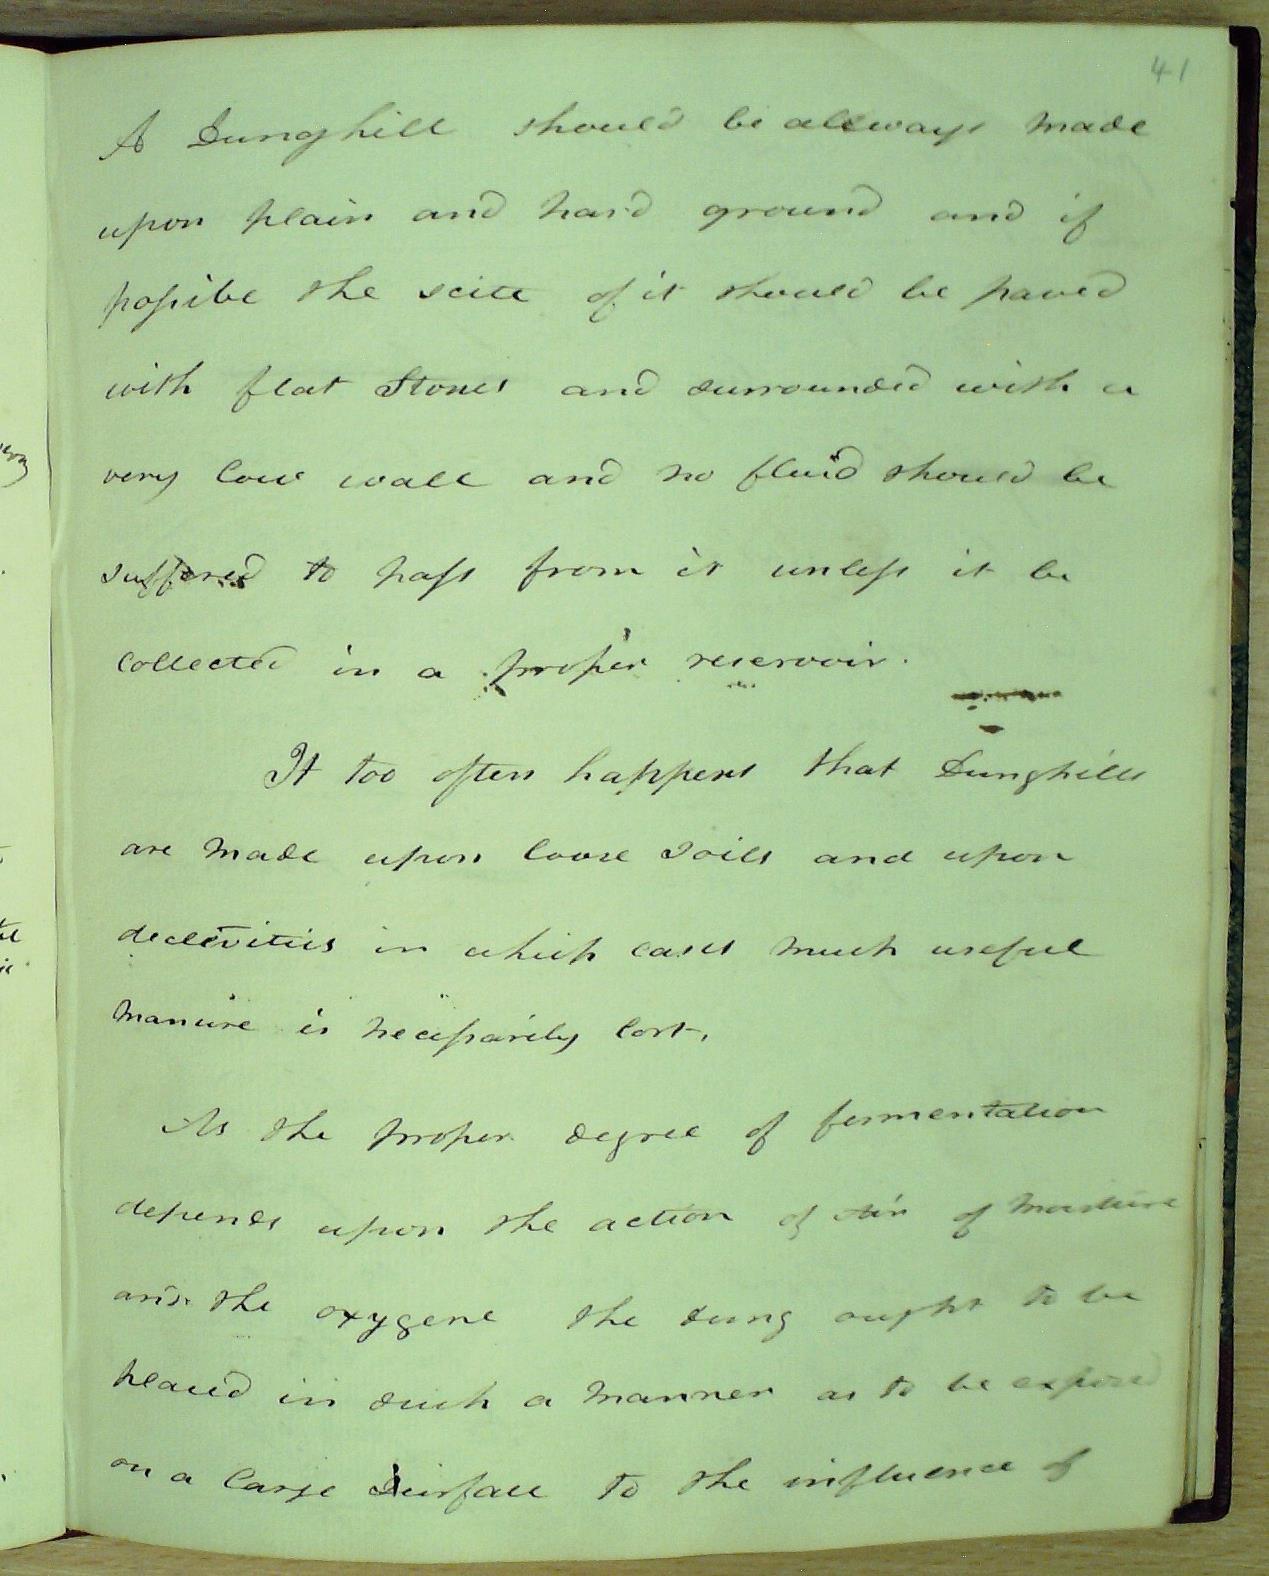 41
A Dunghill should be allways made
upon plain and hard ground and if
possibe the scite of it should be paved
with flat Stones and surrounded with a
very low wall and no fluid should be
suffered to pass from it unless it be
collected in a proper reservoir.
It too often happens that Dunghills
are made upon loose soils and upon
declevities in which cases much useful
manure is necessarily lost.
As the proper degree of fermentation
depends upon the action of Air of Moisture
and the oxygene the dung ought to be
in such a manner as to be exposed
on a large Surface to the influence of